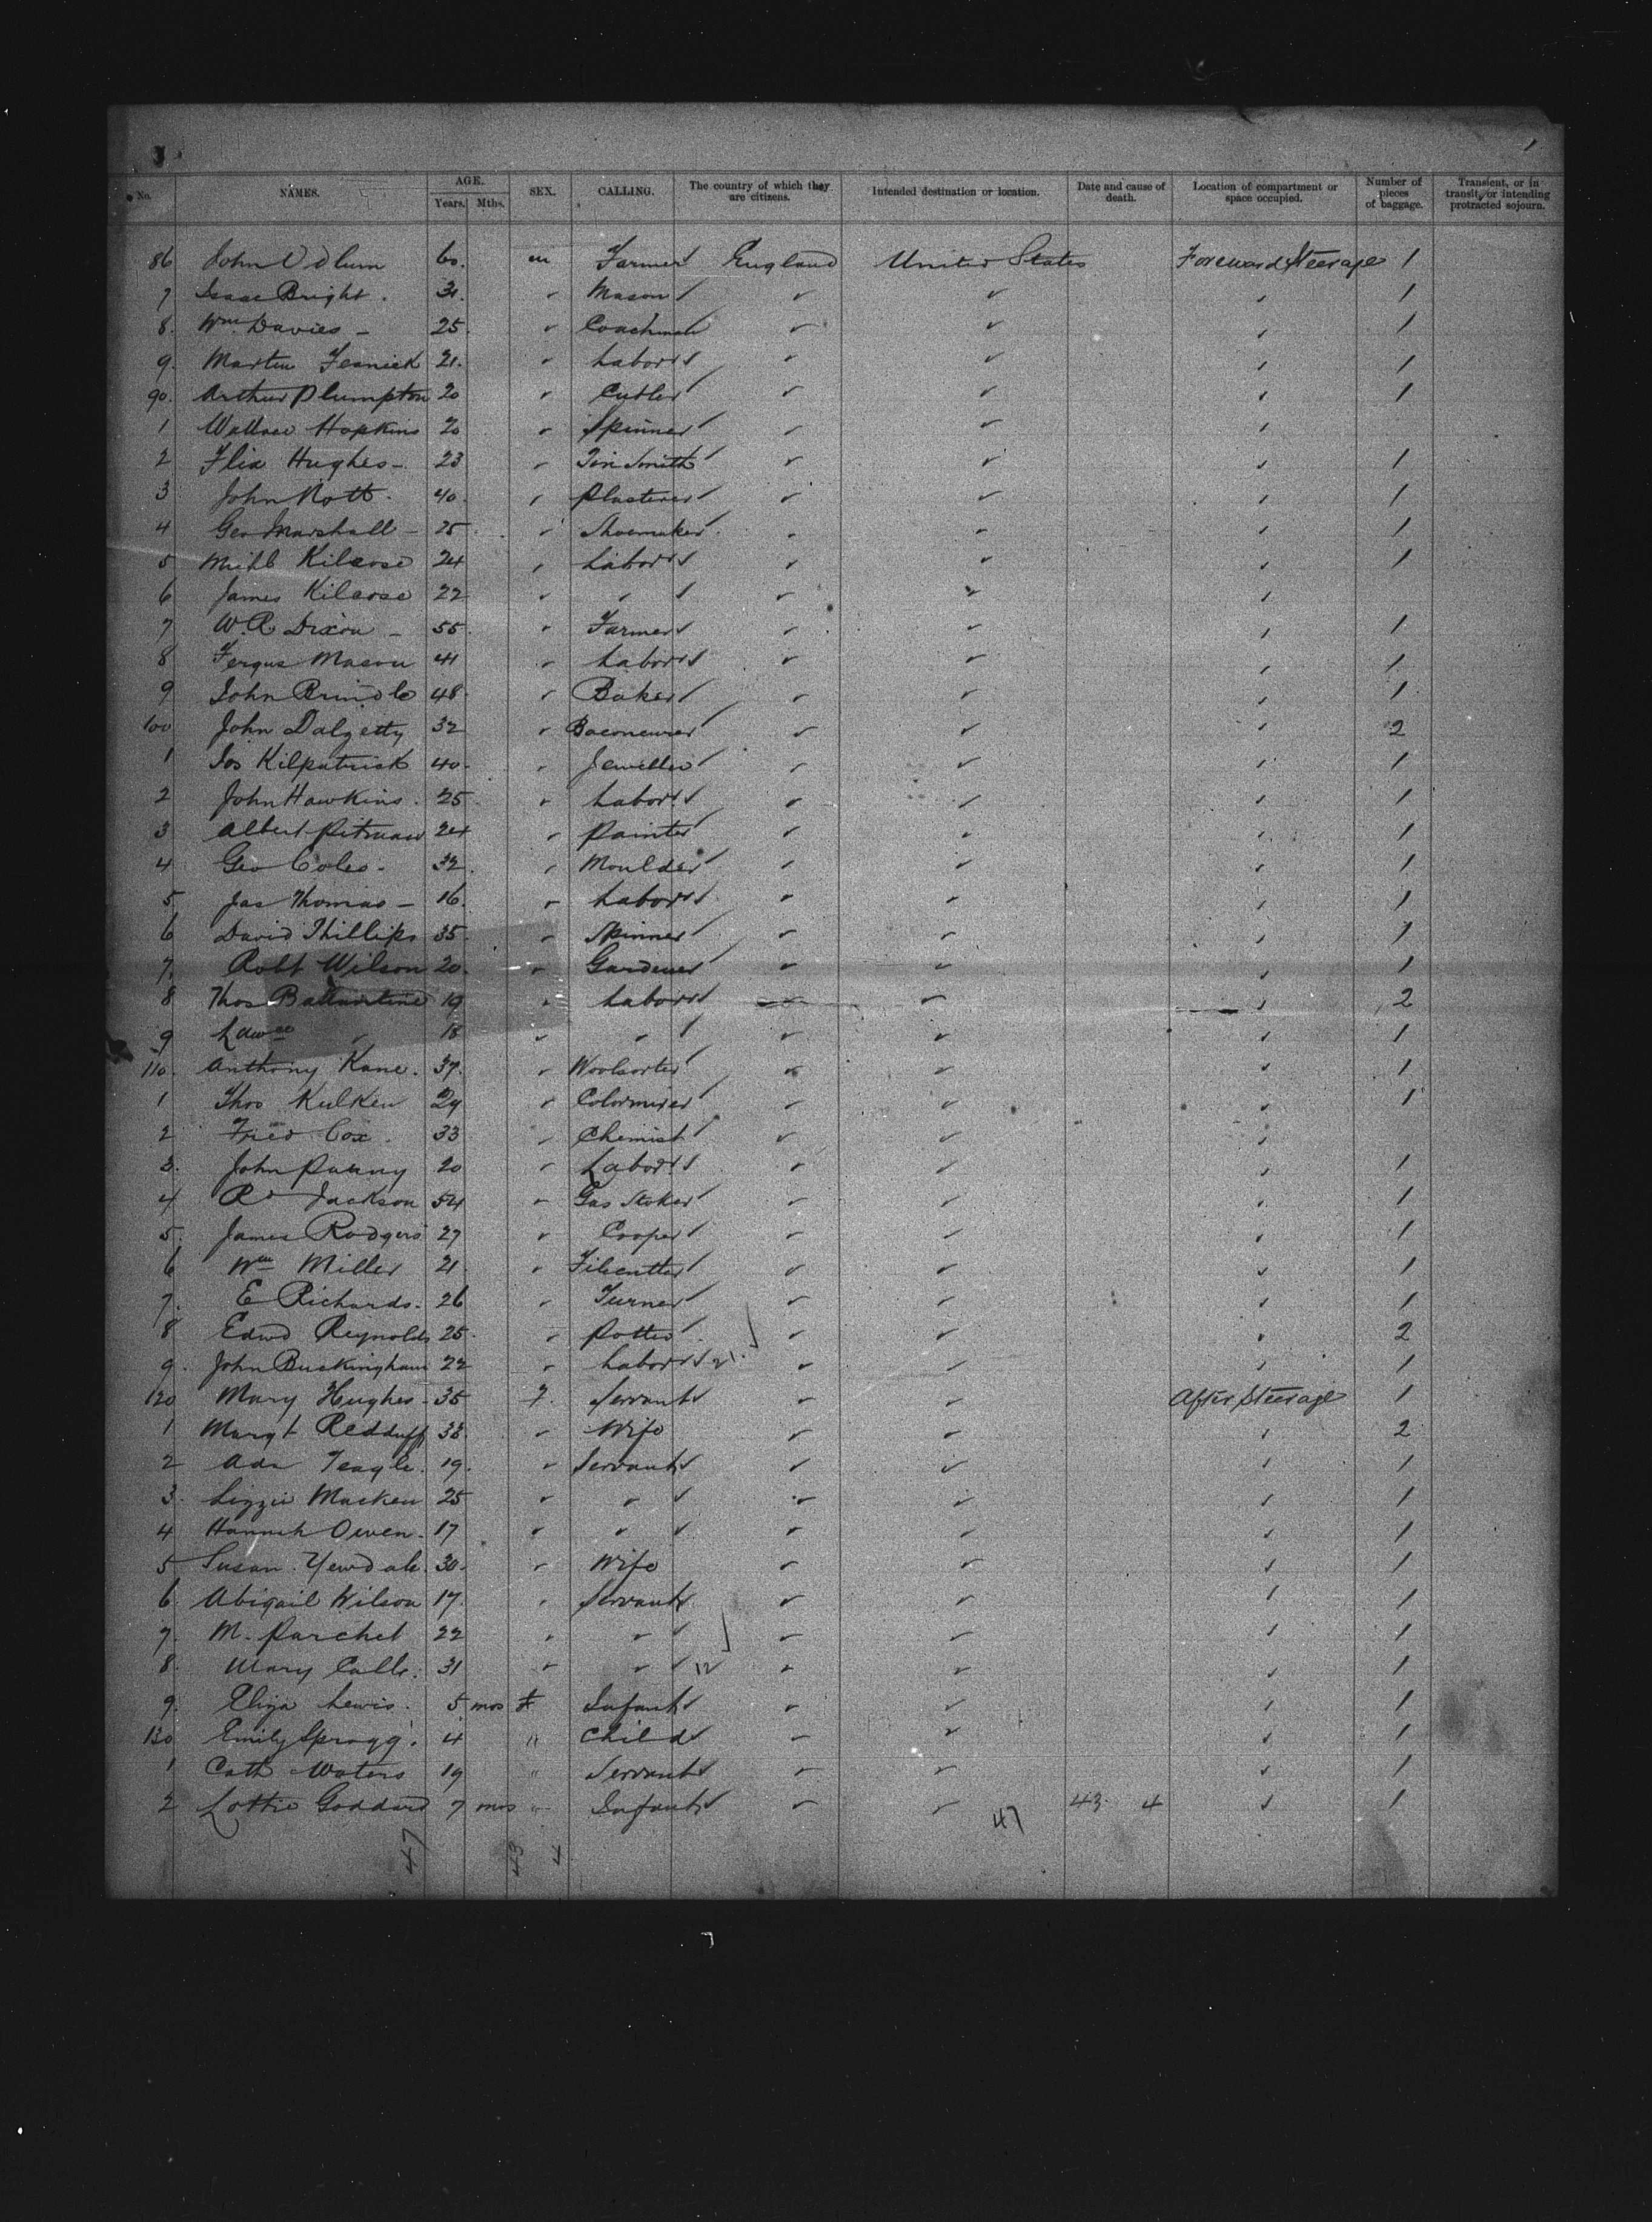 No. NAMES. AGE. Years. Mths. SEX. CALLING. The country of which they are citizens. Intended destination or location. Date and cause of death. Location of compartment or space occupied. Number of pieces of baggage. Transient, or in transit, or intending protracted sojourn.
86 John Odlum 60. m Farmer England United States Foreward Steerage 1
7 Isaac Bright. 31. " Mason " " " 1
8. Wm Davies - 25. " Coachman " " " 1
9. Martin 21. " Labor " " " 1
90. Arthur Plumpton 20 " Cutler " " " 1
1 Wallace Hopkins 20 " Spinner " " "
2 Flia Hughes - 23 " Tin Smith " " " 1
3 John Nott. 40. " Plasterer " " " 1
4 Geo Marshall - 25. " Shoemaker " " " 1
5 Michl Kilcrose 24 " Labor " " " 1
6 James Kilcrose 22 " " " " "
7 W. R Dixon - 55. " Farmer " " " 1
8 Fergus Mason 41 " Labor " " " 1
9 John Brindle 48. " Baker " " " 1
100 John Dalgetty 32 " Baconcurer " " " 2
1 Jos Kilpatrick 40. " Jeweller " " " 1
2 John Hawkins. 25. " Labor " " " 1
3 Albert Pitman 24 " Painter " " " 1
4 Geo Coles - 32. " Moulder " " " 1
5 Jas Thomas - 16. " Labor " " " 1
6 David Phillips 35. " Spinner " " " 1
7. Robt Wilson 20. " Gardener " " " 1
8 Thos Ballantine 19 " Labor " " " 2
9 Lawce " 18 " " " " " 1
110. Anthony Kane. 37. " Woolsorter " " " 1
1 Thos Kulken 29 " Colormixer " " " 1
2 Fred Cox. 33 " Chemist " " "
3. John Punny 20 " Labor " " " 1
4 Rd Jackson 54 " Gas Stoker " " " 1
5. James Rodgers 27 " Cooper " " " 1
6 Wm Miller 21. " Filecutter " " " 1
7. E Richards. 26 " Turner " " " 1
8 Edwd Reynolds 25. " Potter " " " 2
9. John Buckingham 22 " Labor 21. " " " 1
120 Mary Hughes - 35 F. Servant " " After Steerage 1
1 Margt Redduff 38. " Wife " " " 2
2 Ada Teagle. 19. " Servant " " " 1
3. Lizzie Macken 25 " " " " " 1
4 Hannah Owen. 17 " " " " " 1
5 Susan Yewdale. 30. " Wife " " " 1
6. Abigail Wilson 17. " Servant " " " 1
7. M. Parchet 22 " " " " " 1
8. Mary Calle. 31 " " 12 " " " 1
9. Eliza Lewis. 5 mos f Infant " " " 1
130 Emily Spragg. 4 " Child " " " 1
1 Cath Waters 19 " Servant " " " 1
2 Lottie Goddard 7 mos " Infant " " 43 4 " 1
47
47 43 4